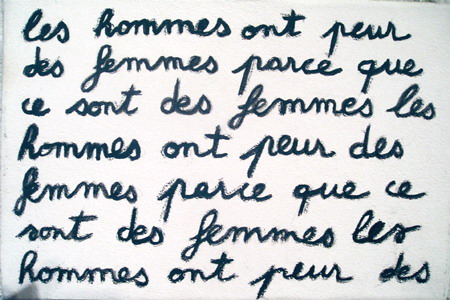 les hommes ont peur
des femmes parce que
ce sont des femmes les
hommes ont peur des
femmes parce que ce
sont des femmes les
hommes ont peur des